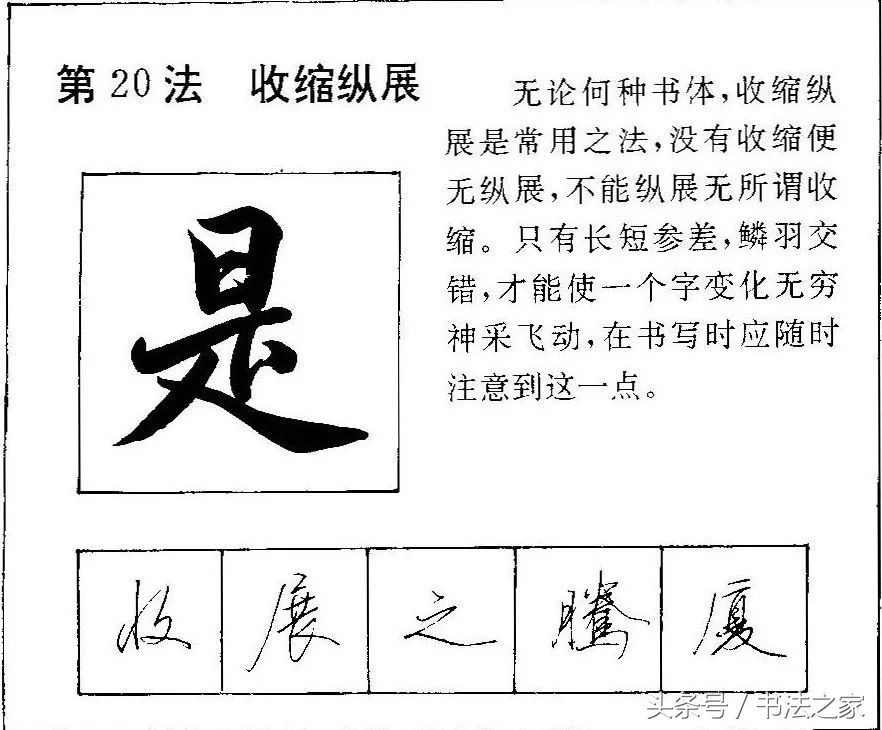 第20法 收缩纵展
无论何种书体,收缩纵
展是常用之法,没有收缩便
无纵展,不能纵展无所谓收
缩。只有长短参差,鳞羽交
错,才能使一个字变化无穷
神采飞动,在书写时应随时
注意到这一点。
是
收 展 之 腾 厦
头条号 / 书法之家